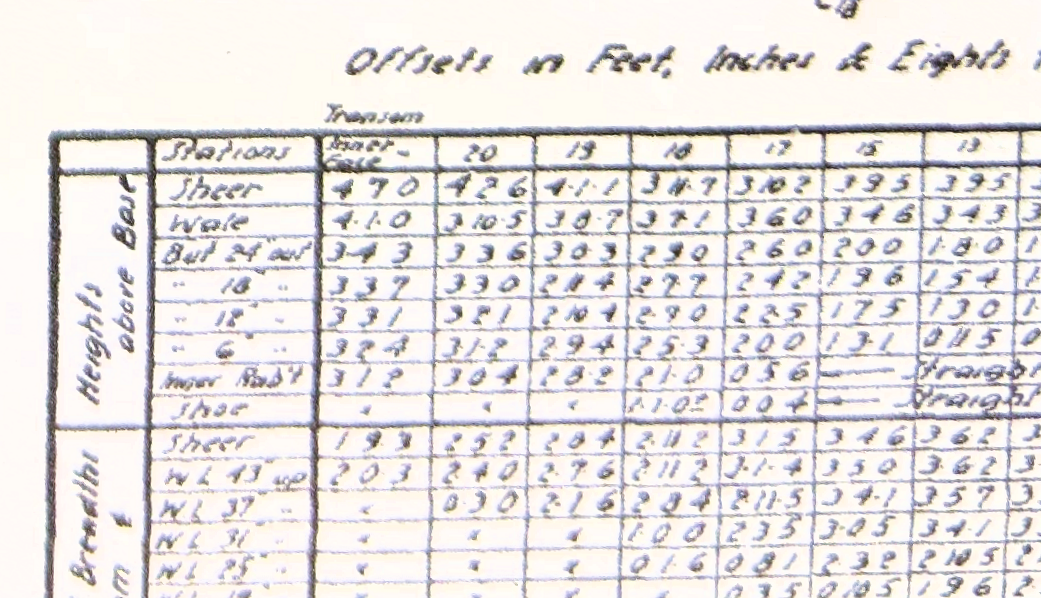 Offsets in Feet, Inches & Eights
Transom
Stations Inner Face - 20 19 18 17 15 13
Heights above Base
Sheer 4 7 0 4 2 6 4-1-1 3 11-7 3 10 2 3 9 5 3 9 5
Wale 4-1-0 3 10-5 3 8-7 3 7 1 3 6 0 3 4 6 3 4 3
But 24" out 3 4 3 3 3 6 3 0 3 2 9 0 2 6 0 2 0 0 1 8 0
" 18" " 3 3 7 3 3 0 2 11 4 2 7 7 2 4 2 1 9 6 1 5 4
" 12" " 3 3 1 3 2 1 2 10 4 2 2 5 1 7 5 1 3 0
" 6" " 3 2 4 3 1-2 2 9 4 2 5 3 2 0 0 1 3-1 0 11 5
Inner Rab't 3 1 2 3 0 4 2 8-2 2 1-0 0 5 6 Straight
Shoe " " " 1-10 0 0 4 Straight
Breadth
Sheer 1 9 3 2 5 2 2 8 4 2-11 2 3 1 5 3 4 6 3 6 2
WL 43" up 2 0 3 2 4 0 2-7 6 2 11 2 3-1-4 3 5 0 3 6 2
WL 37" " " 0-3 0 2-1 6 2 8 4 2-11-5 3 4-1 3 5 7
WL 31" " " " 1-0 0 2 3 5 3-0 5 3 4-1
WL 25" " " " 0 1-6 0 8 1 2 3 2 2 10 5
0 3 5 0 10 5 1 9 6